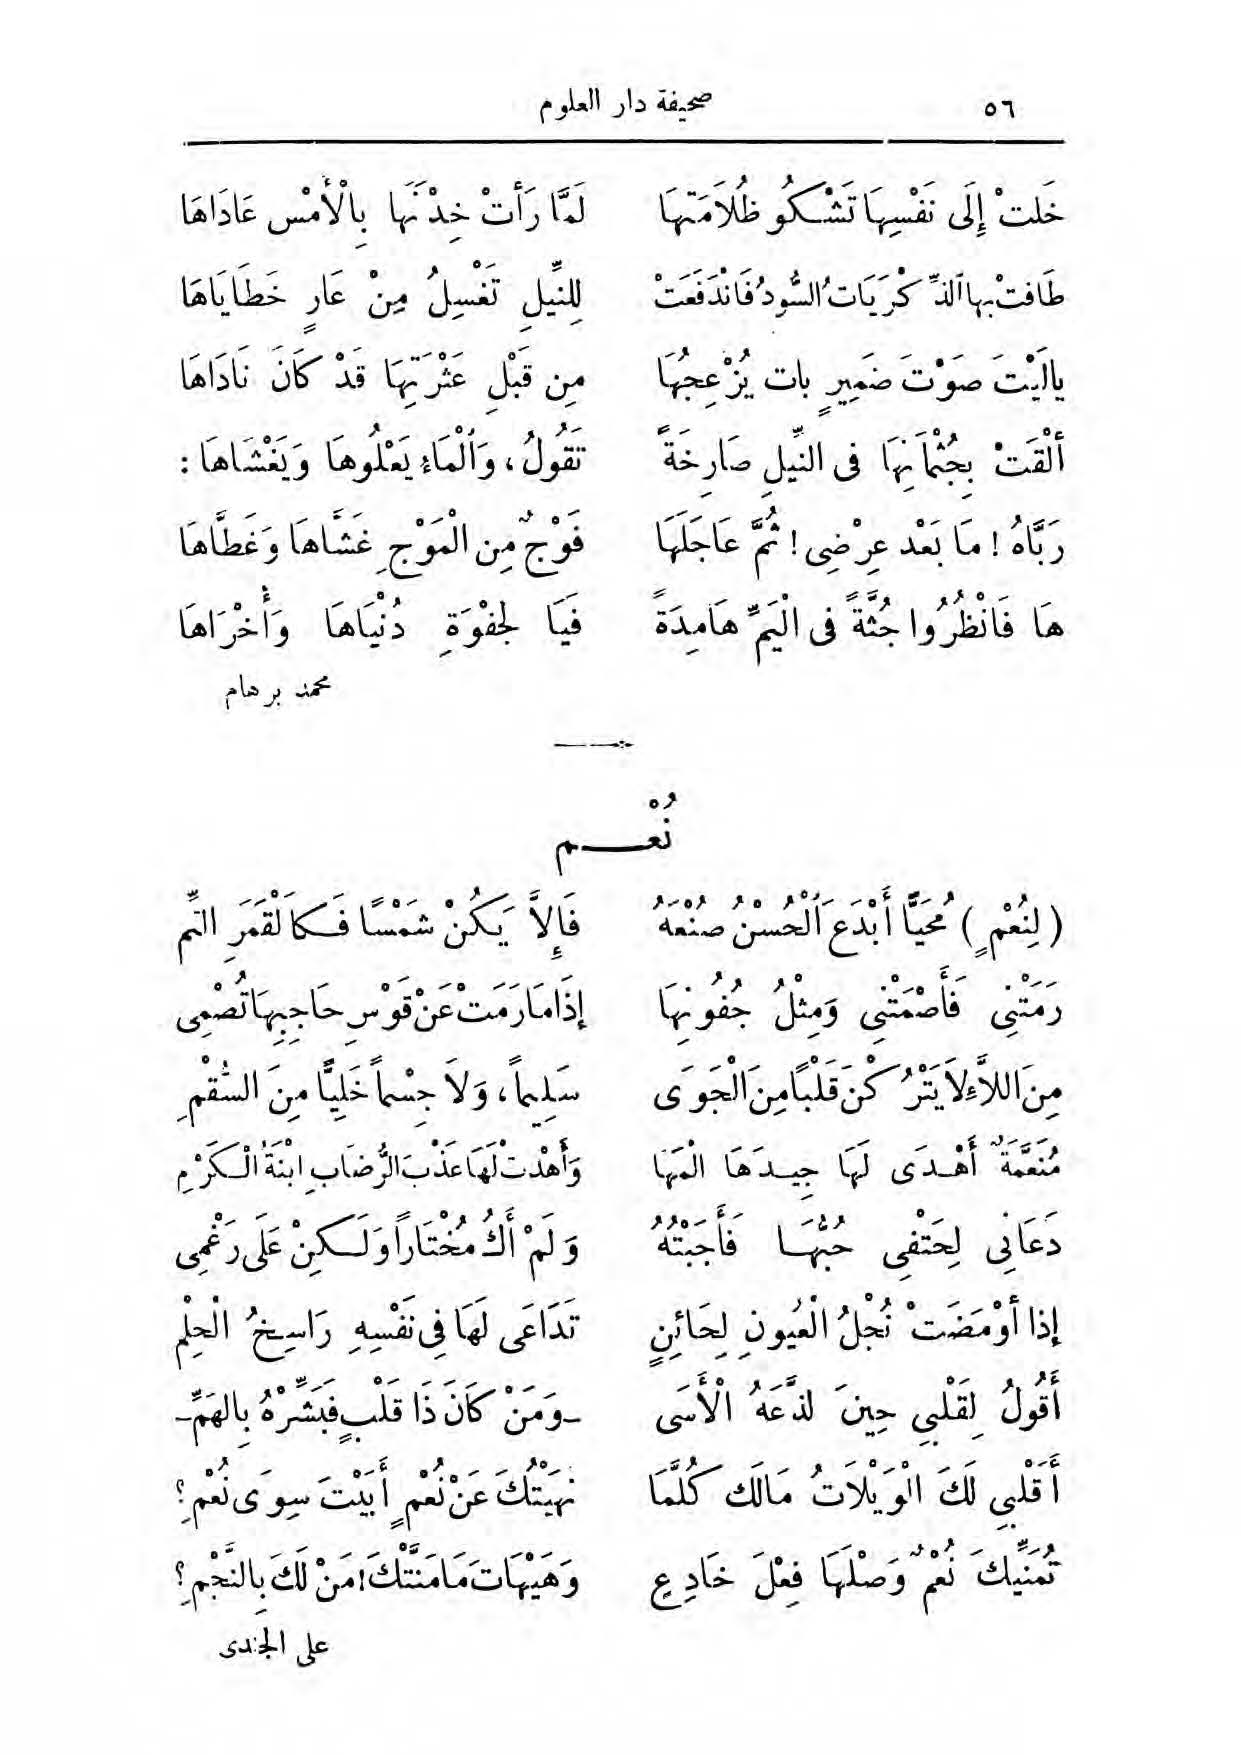 ٥٦ صحيفة دار العلوم
خَلتْ إِلَى نَفْسِهَا تَشْكُو ظُلَامَتَهَا لَمَّا رَأَتْ خِدْنَهَا بِالْأَمْسِ عَادَاهَا
طَافتْ بها الذِّكْرَيَاتُ السُّودُ فَانْدَفَعَتْ لِلنِّيلِ تَغْسِلُ مِنْ عَارٍ خَطَايَاهَا
يا لَيْتَ صَوْتَ ضَمِيرٍ بات يُزْعِجُهَا مِن قَبْلِ عَثْرَتِهَا قَدْ كَانَ نَادَاهَا
أَلْقَتْ بِجُثْمَانِهَا فى النِّيلِ صَارِخَةً تَقُولُ، وَالْمَاءُ يَعْلُوهَا وَيَغْشَاهَا :
رَبَّاهُ ! مَا بَعْد عِرْضِى ! ثُمَّ عَاجَلَهَا فَوْجٌ مِن الْمَوْجِ غَشَّاهَا وَغَطَّاهَا
هَا فَانْظُرُوا جُثَّةً فى الْيَمِّ هَامِدَةً فَيَا لِجَفْوَةِ دُنْيَاهَا وَأُخْرَاهَا
محمد برهام
نُعْـــم
( لِنُعْمٍ ) مُحَيًّا أَبْدَعَ الْحُسْنُ صُنْعَهُ فَإِلاَّ يَكُنْ شَمْسًا فَكَالْقَمَرِ التِّم
رَمَتْنِى فَأَصْمَتْنِى وَمِثْلُ جُفُونِهَا إِذَا مَا رَمَتْ عَنْ قَوْسِ حَاجِبِهَا تُصْمِى
مِنَ اللاَّءِ لاَ يَتْرُكْنَ قَلْبًا مِنَ الْجَوَى سَلِيماً، وَلاَ جِسْماً خَلِيًّا مِنَ السُّقْمِ
مُنَعَّمَةٌ أَهْدَى لَهَا جِيدَهَا الْمَهَا وَأَهْدَتْ لَهَا عَذْبَ الرُّضَابِ ابْنَةُ الْكَرْمِ
دَعَانِى لِحَتْفِى حُبُّهَا فَأَجَبْتُهُ وَلَمْ أَكُ مُخْتَاراً وَلَكِنْ عَلَى رَغْمِى
إِذا أَوْمَضَتْ نُجْلُ الْعُيُونِ لِحَائِنٍ تَدَاعَى لَهَا فِى نَفْسِهِ رَاسِخُ الْحِلْمِ
أَقُولُ لِقَلْبِى حِينَ لذَّعَهُ الْأَسَى -وَمَنْ كَانَ ذَا قَلْبٍ فَبَشِّرْهُ بِالْهَمِّ-
أَقَلْبِى لَكَ الْوَيْلَاتُ مَالَك كُلَّمَا نَهَيْتُكَ عَنْ نُعْمٍ أَبَيْتَ سِوَى نُعْمِ؟
تُمَنِّيكَ نُعْمٌ وَصْلَهَا فِعْلَ خَادِعٍ وَهَيْهَاتَ مَا مَنَّتْكَ! مَنْ لَكَ بِالنَّجْمِ؟
على الجندى